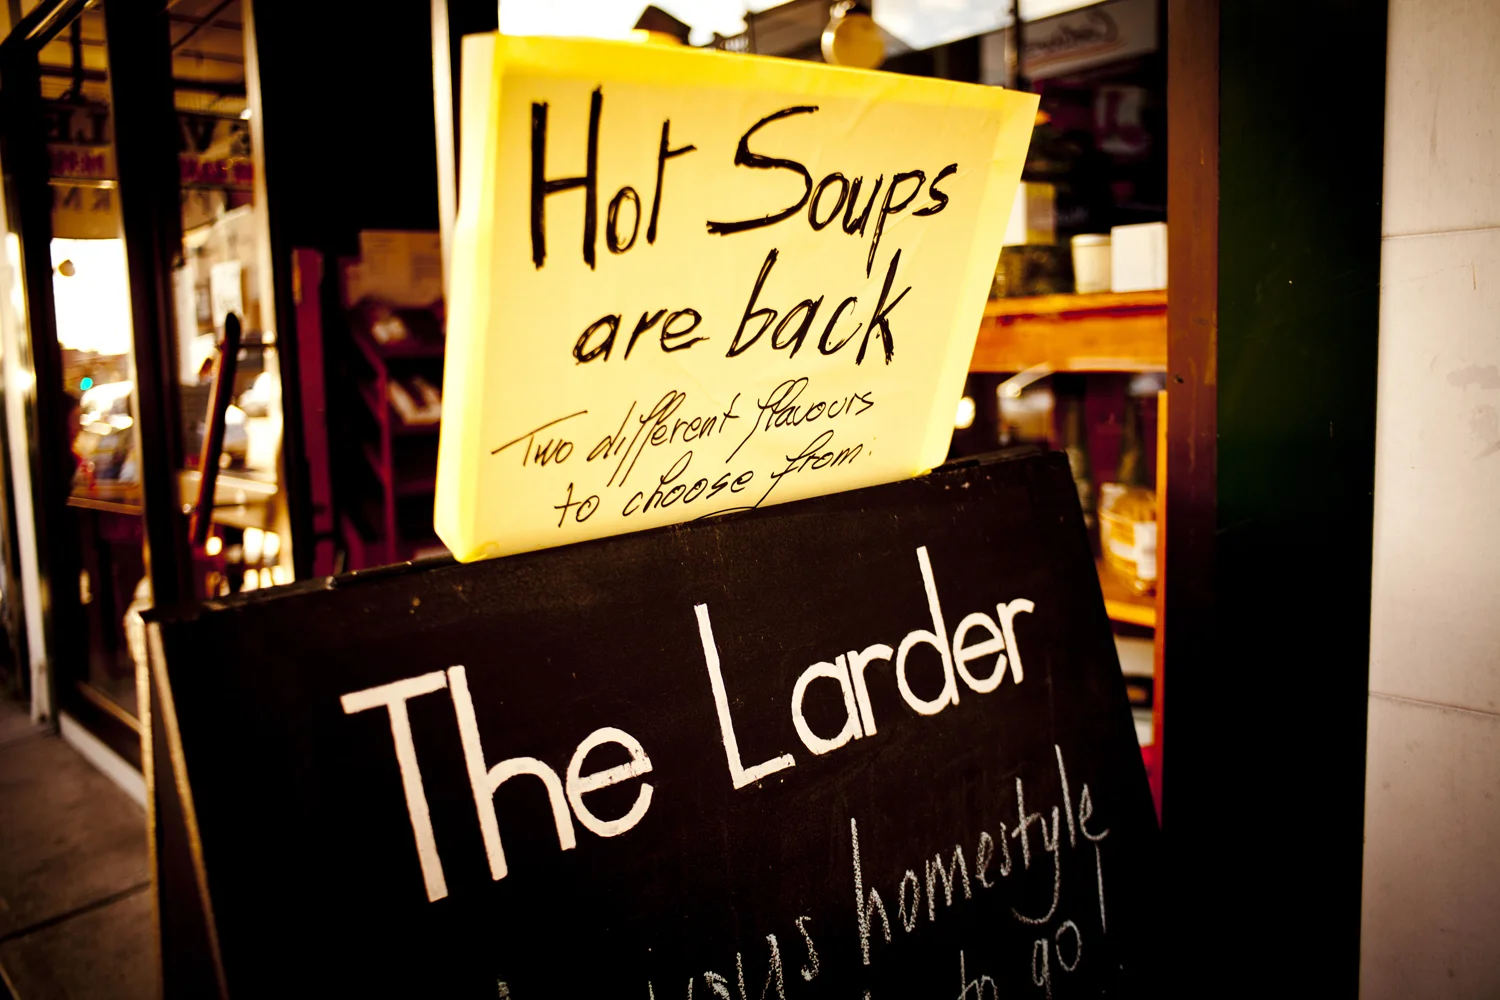 Hot Soups
are back
Two different flavours
to choose from:
The Larder
homestyle
to go!